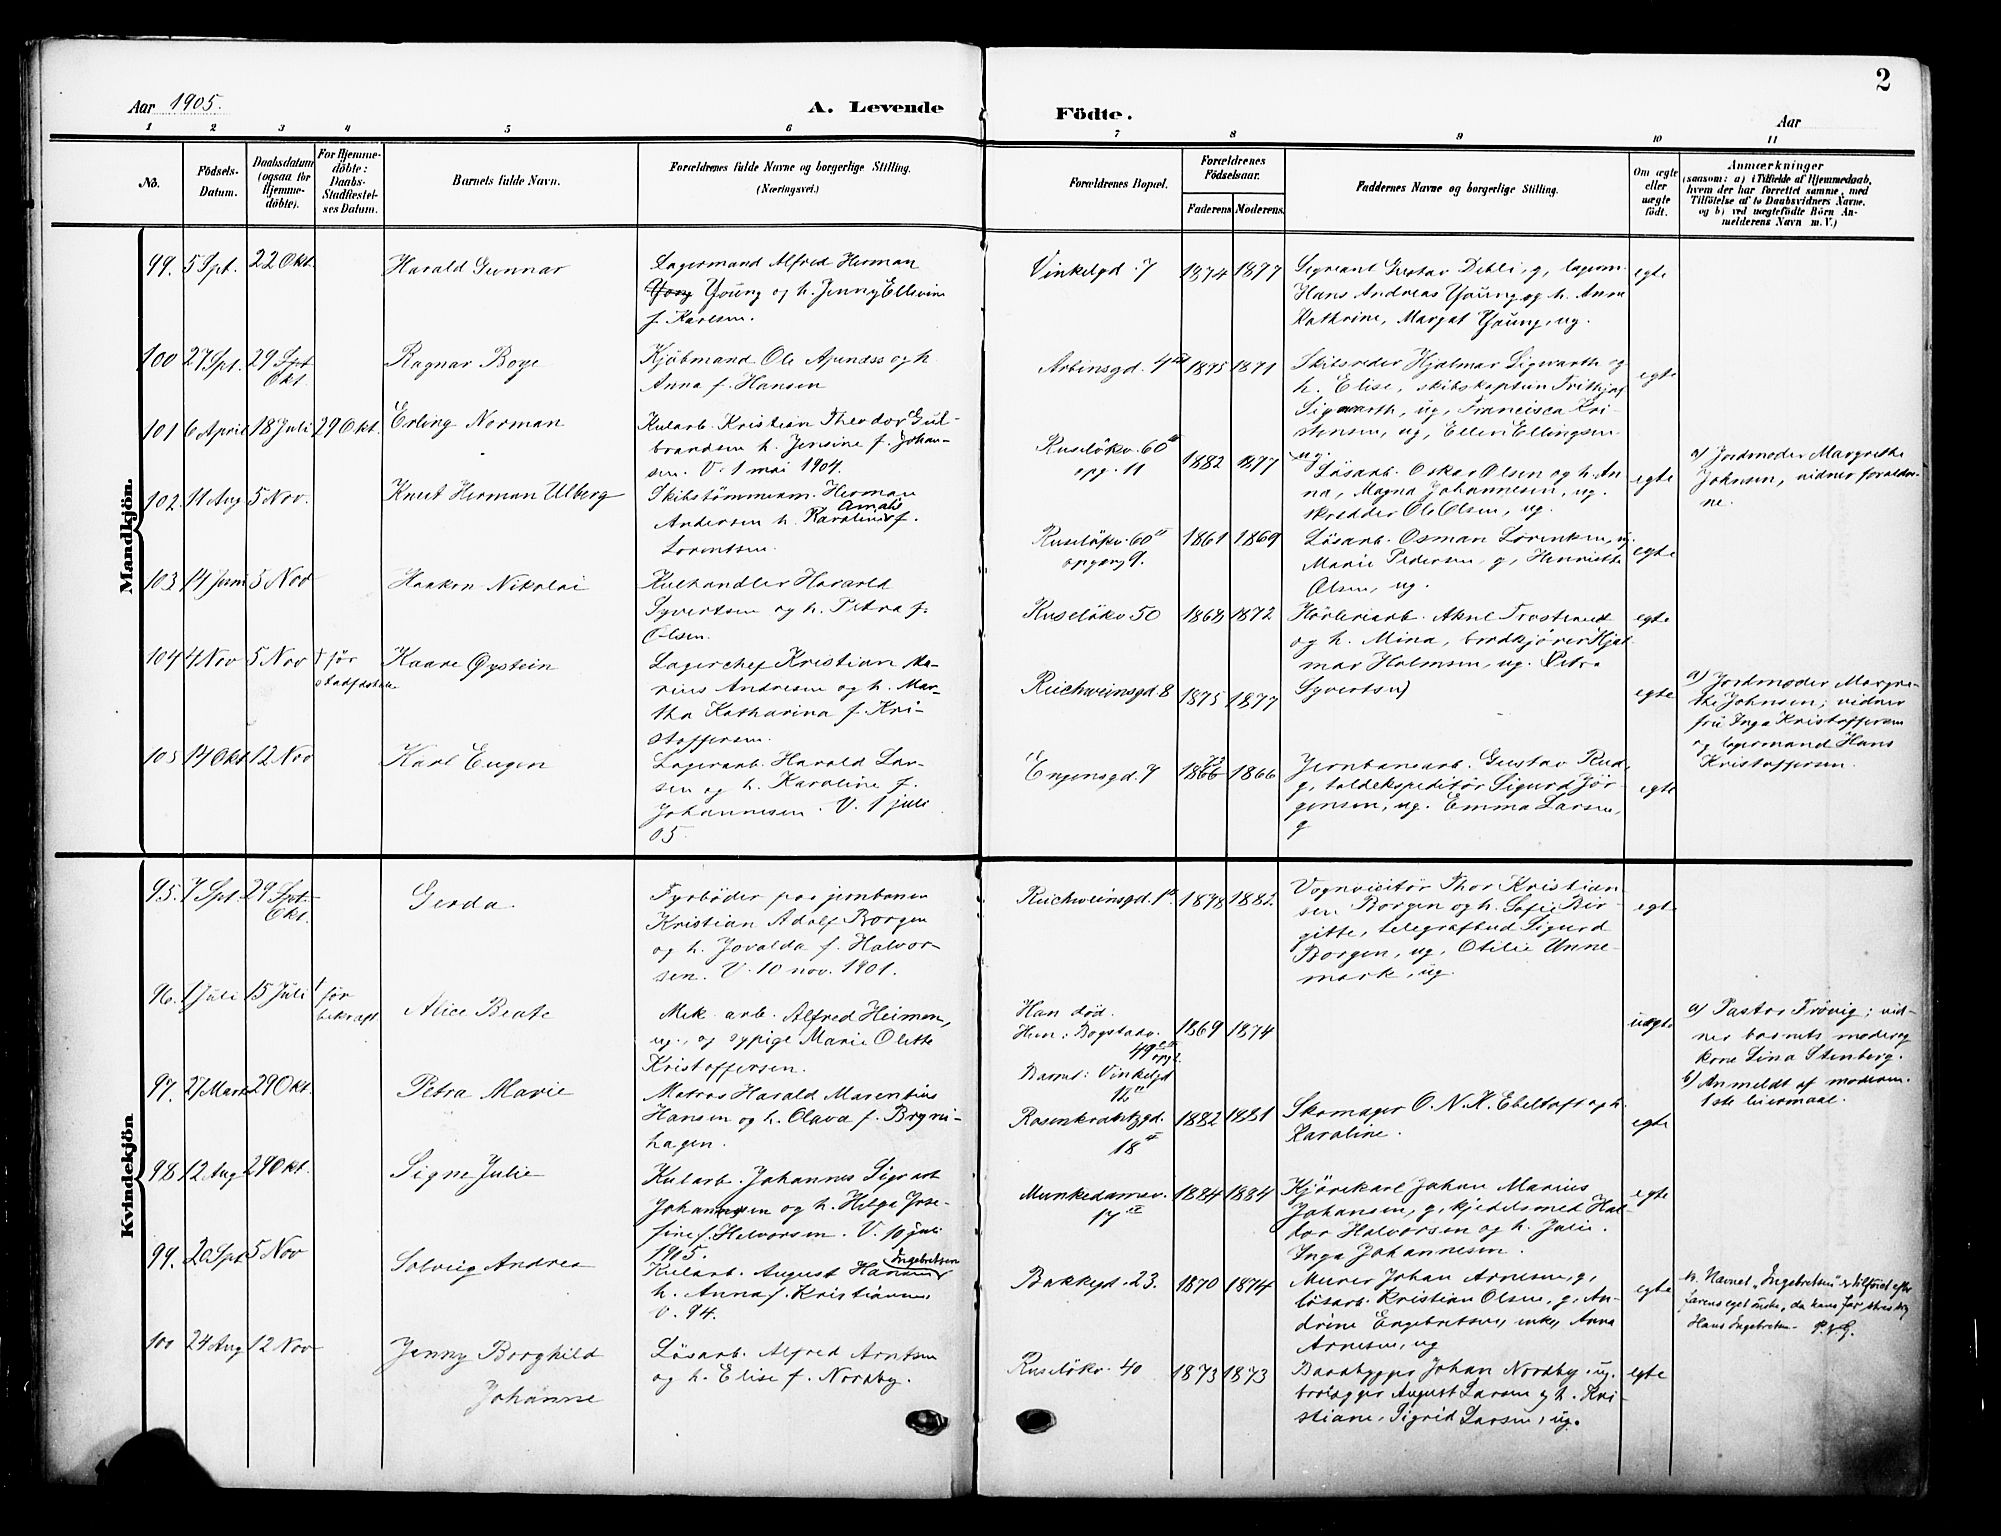 2
Aar 1905.
A. Levende Födte.
Aar
1 2 3 4 5 6 7 8 9 10 11
No.
Födsels-Datum.
Daabsdatum (ogsaa for Hjemmedöbte).
For Hjemmedöbte: Daabs-Stadfæstelses Datum.
Barnets fulde Navn.
Forældrenes fulde Navne og borgerlige Stilling.
(Næringsvei.)
Forældrenes Bopæl.
Forældrenes Födselsaar.
Faderens. Moderens.
Faddernes Navne og borgerlige Stilling.
Om ægte eller uægte födt.
Anmærkninger
(saasom: a) i Tilfælde af Hjemmedaab, hvem der har forrettet samme, med Tilföielse af to Daabsvidners Navne, og b) ved uægtefödte Börn Anmelderens Navn m. V.)
Mandkjön.
99. 5 Spt. 22 Okt. Harald Gunnar
Lagermand Alfred Herman
Yong Young og h. Jenny Ellevine
f. Karlsen.
Vinkelgd. 7 1874 1877
Sergeant Gustav Dehli, g, lagerm.
Hans Andreas Young og h. Anna
Kathrine, Margat Young, ug.
egte
100 27 Spt. 29 Spt Okt. Ragnar Boye
Kjöbmand Ole Amundss og h
Anna f. Hansen
Arbinsgd. 4 1875 1871
Skibsreder Hjalmar Sigwarth og
h. Elise, skibskaptein Frithjof
Sigwarth, ug, Francisca Kri-
stensen, ug, Ellen Ellingsen
ug.
egte
101 6 April 18 Juli 29 Okt. Erling Norman
Kularb. Kristian Theodor Gul-
brandsen h. Jensine f. Johan-
sen. V. 1 mai 1904.
Ruselökv. 60
opg. 11 1882 1877
Lösarb. Oskar Olsen og h. An-
na, Magna Johannesen, ug.
skredder Ole Olsen, ug.
egte
a) Jordmoder Margrethe
Johnsen, vidner foreldre-
ne.
102 11 Aug 5 Nov. Knut Herman Ulberg
Skibstömmerm. Herman
Andersen h. Karoline Amalie f.
Lorentsen.
Ruselökv. 60
opgang 9. 1861 1869
Lösarb. Osman Lorenken, ug.
Marie Pedersen, g, Henriette
Olsen, ug.
egte
103 14 Juni 5 Nov Haakon Nikolai
Kulhandler Harald
Syvertsen og h. Petra f.
Olsen.
Ruselökv. 50 1868 1872
og h. Mina, brödkjörer Hjal-
mar Holmsen, ug. Petra
Syvertsen)
egte
104 4 Nov 5 Nov † för stadfestelse Kaare Øystein
Lagerchef Kristian Ma-
rius Andresen og h. Mar-
tha Katharina f. Kri-
stoffersen.
Reichweinsgd. 8 1875 1877
egte
a) Jordmoder Margre-
the Johnsen; vidner
fru Inga Kristoffersen
og lagermand Hans
Kristoffersen.
105 14 Okt 12 Nov Karl Eugen
Lagerarb. Harald Lar-
sen og h. Karoline f.
Johannesen. V. 1 juli
05.
Engensgd. 7 1866 1866
Jernbanearb. Gustav Rud,
g, toldekspeditör Sigurd Jör-
gensen, ug. Emma Larsen,
g
egte
Kvindekjön
95. 7 Spt. 29 Spt. Okt. Gerda.
Fyrböder paa jernbanen
Kristian Adolf Borgen
og h. Jovalda f. Halvor-
sen. V. 10 nov. 1901.
Reichweinsgd. 1 1878 1882.
Vognvisitör Thor Kristian-
sen Borgen og h. Sofie Bir-
gitte, telegrafbud Sigurd
Borgen, ug, Otilie Unne-
mark, ug.
egte
96. 1 Juli 15 Juli † för bekræft Alice Beate
Mek. arb. Alfred Heimen,
ug. og sypige Marie Olette
Kristoffersen.
Han död.
Hun: Bogstadv.
49 opg 2
Barnet: Vinkelgd
12
1869 1874
uegte
a) Pastor Frövig; vid-
ner barnets moder og
kone Lina Stenberg.
b) Anmeldt af moderen.
1ste leiermaal.
97. 27 Marts 29 Okt. Petra Marie
Matros Harald Marentius
Hansen og h. Olava f. Bryni-
hagen.
Rosenkrantzgd.
18 1882 1881
Skomager O. N. K. Ebeltoft og h.
Karoline.
egte
98 12 Aug 29 Okt. Signe Julie
Kularb. Johannes Sigvart
Johannesen og h. Helga Jose-
fine f. Helvorsen. V. 10 juli
1905.
Munkedamsv.
17 1884 1884
Kjörekarl Johan Marius
Johansen, g, kjedelsmed Hal-
vor Halvorsen og h. Julie.
Inga Johannesen.
egte
99. 20 Spt 5 Nov Solveig Andrea
Kularb. August Hansen Ingebretsen
h. Anna f. Kristiansen.
V. 94.
Bakkegd. 23. 1870 1874
Murer Johan Arnesen, g,
lösarb. Kristian Olsen, g, An-
drine Engebretsen, enke, Anna
Arnesen, ug
egte
Navnet "Ingebretsen" er tilföiet efter
farens eget önske, da hans far
Hans Ingebretsen.
100 24 Aug 12 Nov Jenny Borghild
Johanne
Lösarb. Alfred Arntsen
og h. Elise f. Nordby.
Ruselökv. 40 1873 1873
Baadbygger Johan Nordby, ug.
August Larsen og h. Kri-
stiane, Sigrid Larsen, ug.
egte